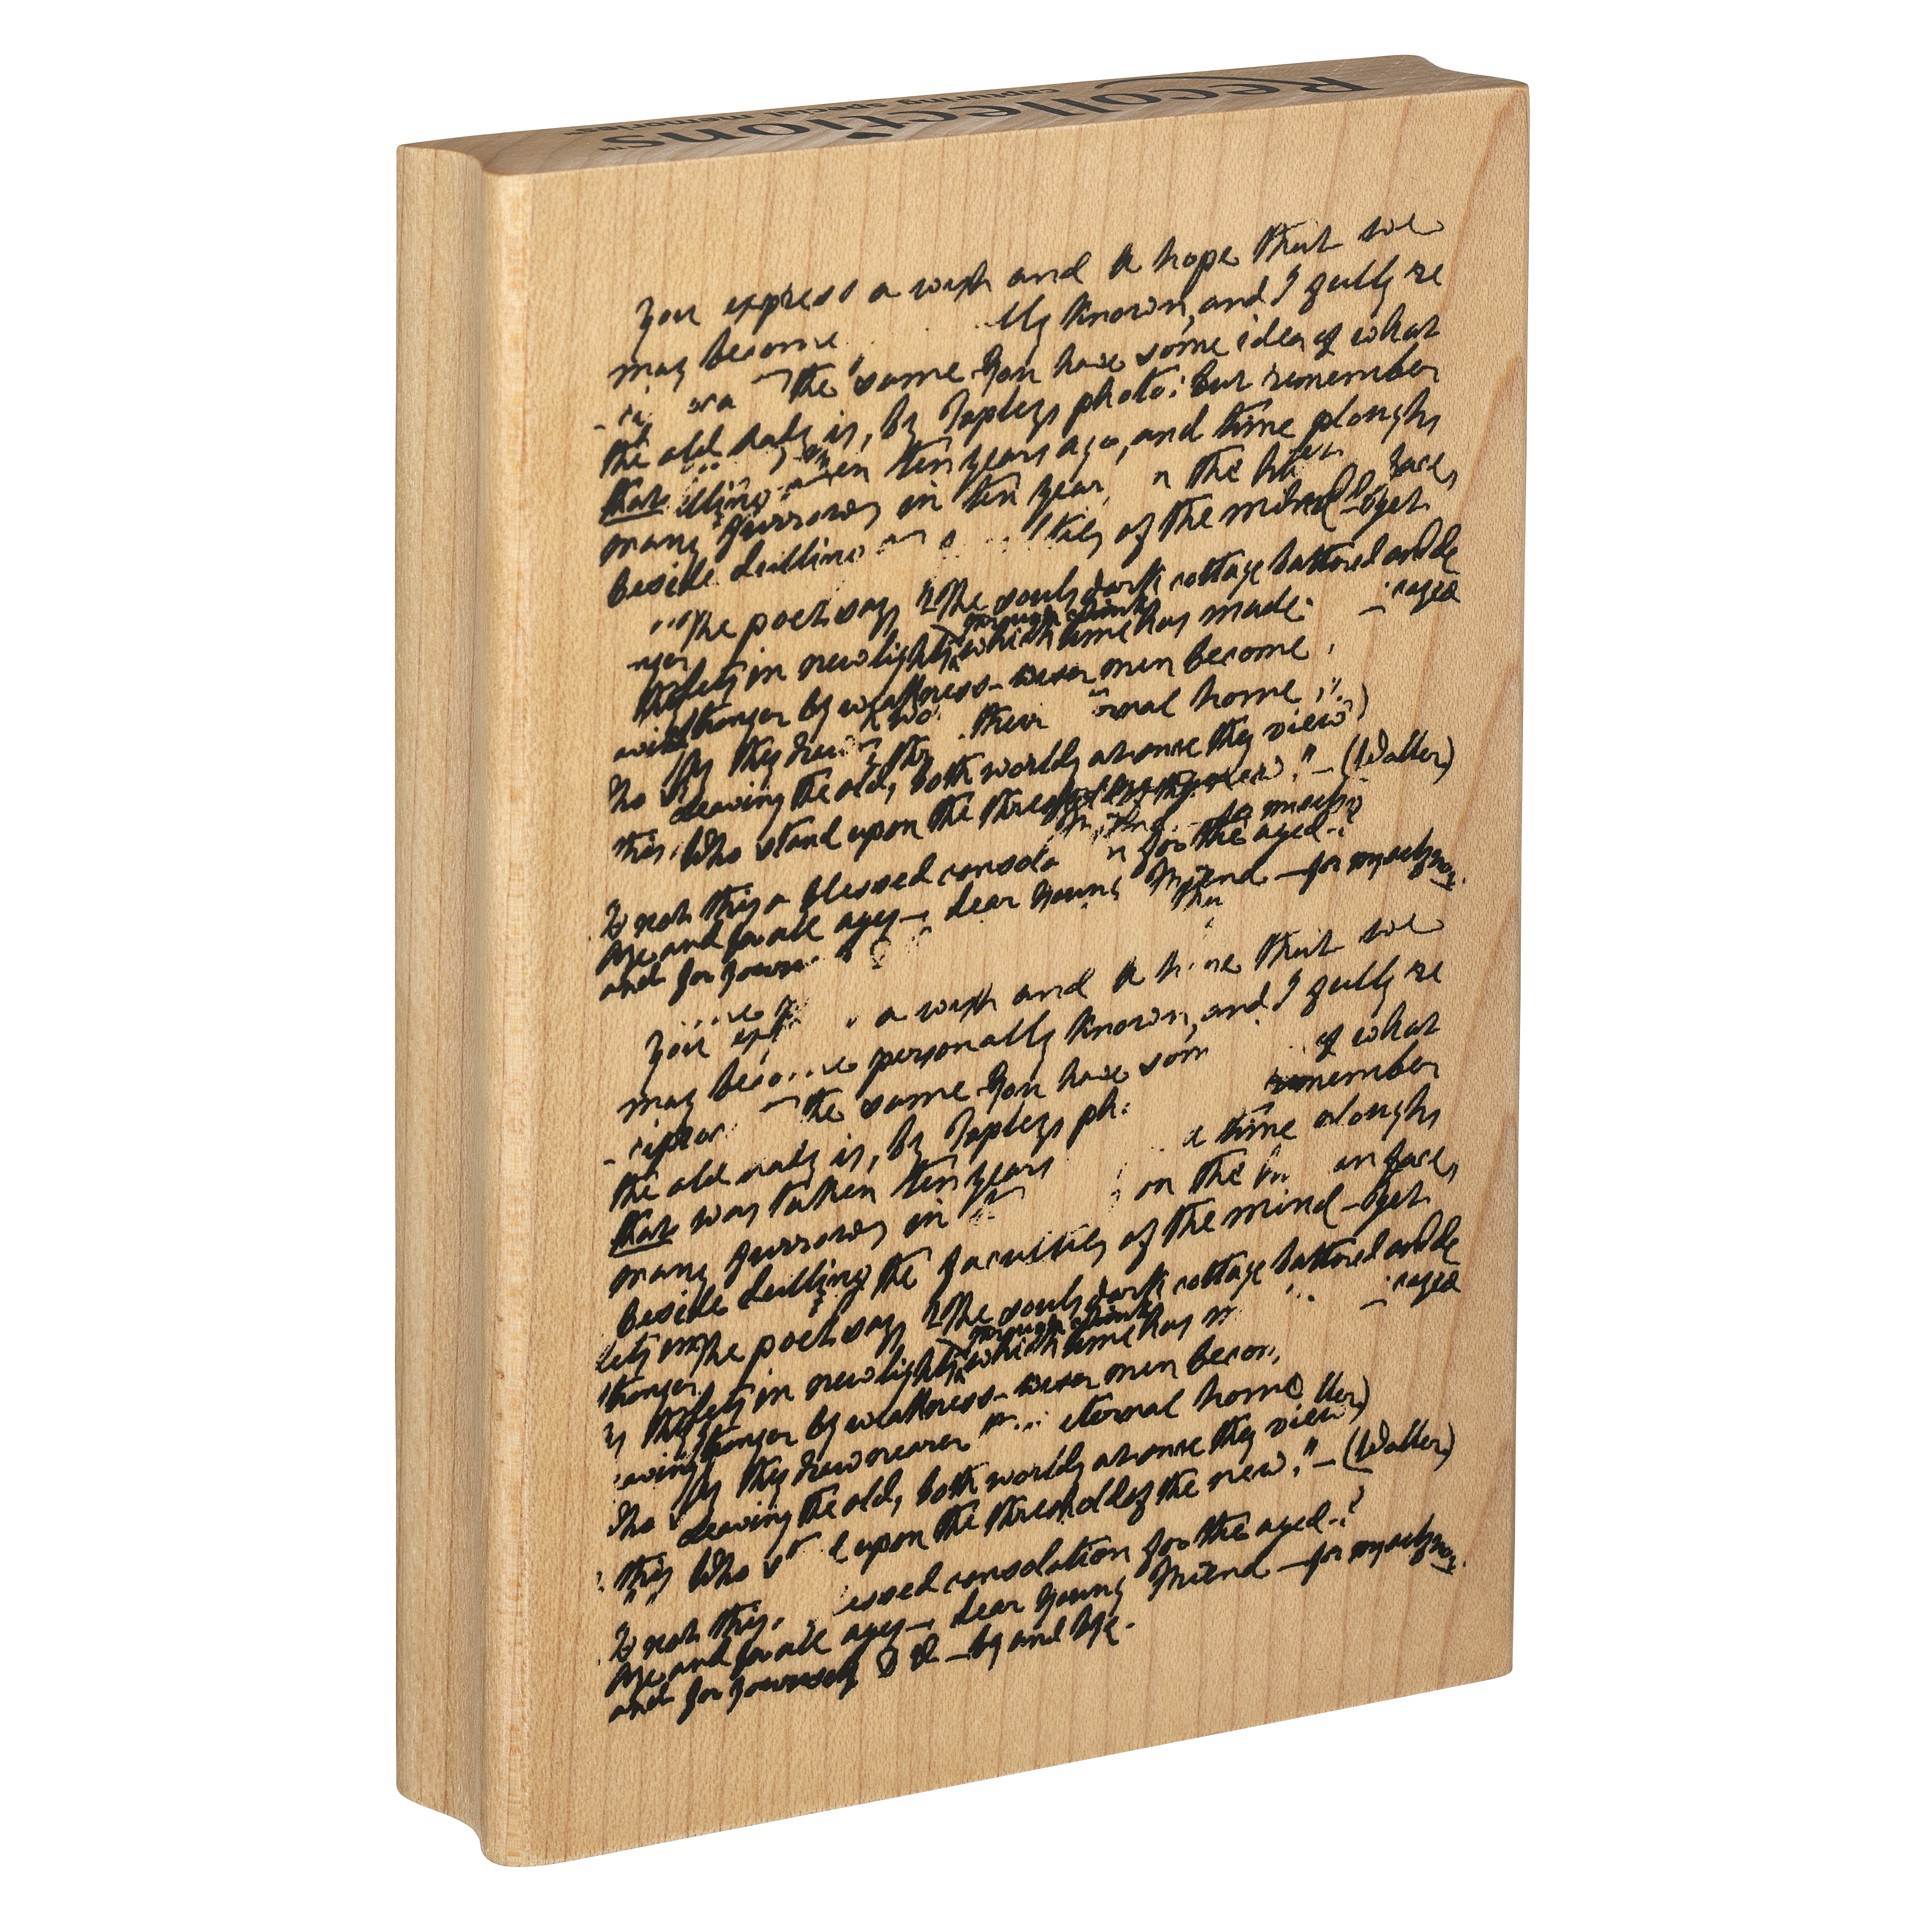 Recollections™
capturing special memories™
You express a wish and a hope that we
may become lly known, and I fully re
the same You have some idea of what
the old lady is, by Tapleys photo: but remember
that ten years ago, and time ploughs
many furrows in ten year, n the faces,
beside dulling ties of the mind - yet
"The poet says "The souls dark cottage battered and de
cayed
through chinks
in new lights which time has made:
stronger by weakness - wiser men become,
they their rnal home,
Leaving the old, both worlds at once they view
this, Who stand upon the threshold of the new." - (Waller)
Is not this a blessed consola n for the aged - ?
Age and for all ages - dear Young Friend - for myself now
and for yours
You a wish and a that we
may personally known, and I fully re
the same You have som of what
the old lady is, by Tapleys ph remember
that was taken ten years time ploughs
many furrows in on the faces,
beside dulling the faculties of the mind - yet
The poet says "The souls dark cottage battered and de
cayed
through chinks
in new lights which time has
stronger by weakness - wiser men becom
they draw nearer eternal home
Leaving the old, both worlds at once they view
this Who upon the threshold of the new." - (Waller)
Is not this essed consolation for the aged - ?
Age and for all ages - dear Young Friend - for myself now
and for yourself - by and bye.